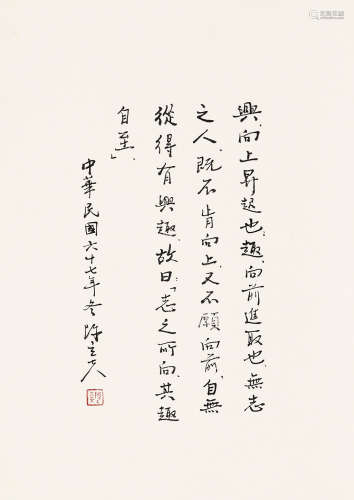 興、向上昇起也；趣、向前進取也、無志
之人、既不肯向上、又不願向前、自無
從得有興趣、故曰：「志之所向、其趣
自至」、
中華民國六十七年冬陳立夫